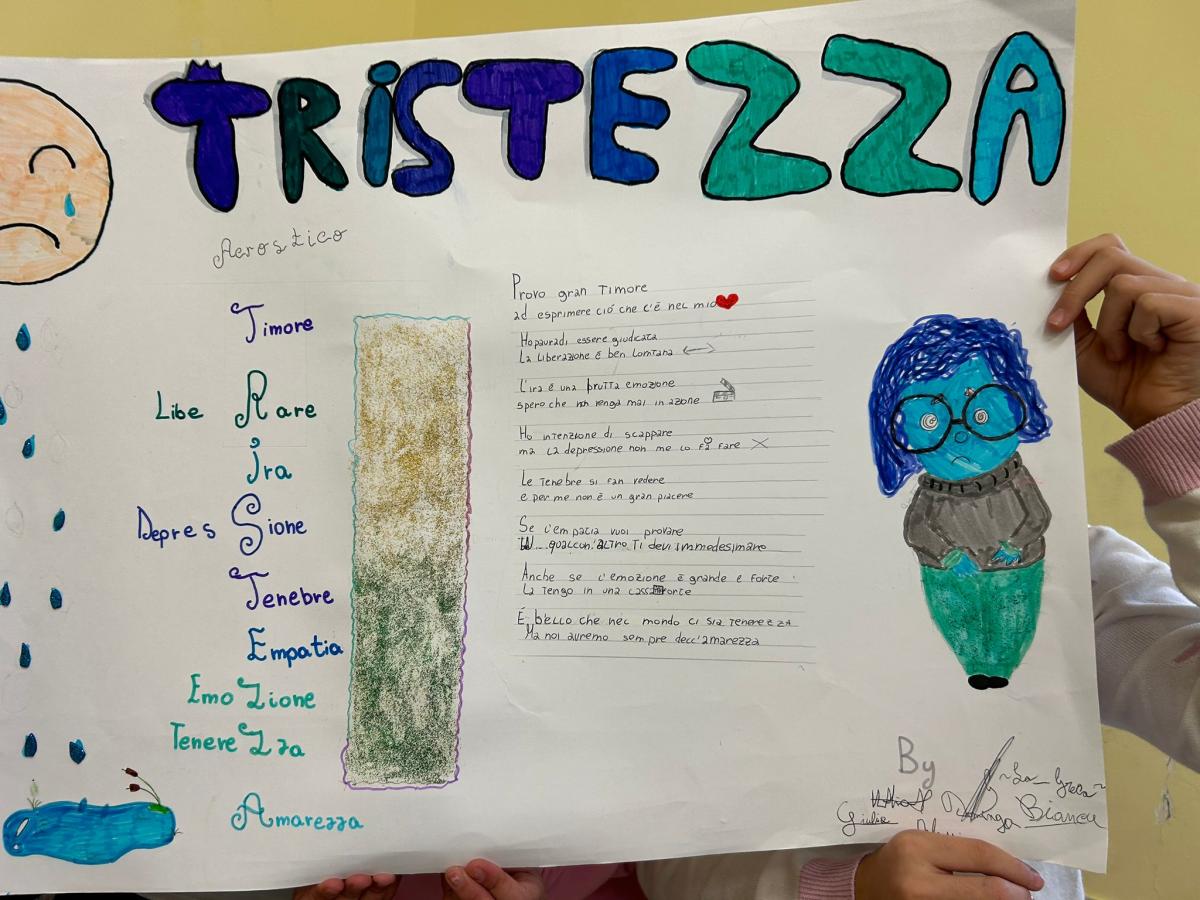 TRiSTEZZA
Acrostico
Timore
LibeRare
ira
DepresSione
Tenebre
Empatia
EmoZione
TenereZza
Amarezza
Provo gran Timore
ad esprimere ció che c'è nel mio
Ho paura di essere giudicata
La liberazione è ben lontana
L'ira è una brutta emozione
spero che non venga mai in azione
Ho intenzione di scappare
ma la depressione non me lo fà fare
Le Tenebre si fan vedere
e per me non è un gran piacere
Se l'empatia vuoi provare
in qualcun'altro Ti devi immedesimare
Anche se l'emozione è grande e forte
La tengo in una cassaforte
É bello che nel mondo ci sia tenerezza
Ma noi avremo sempre dell'amarezza
By
~La Greca~
Giulia
Bianca